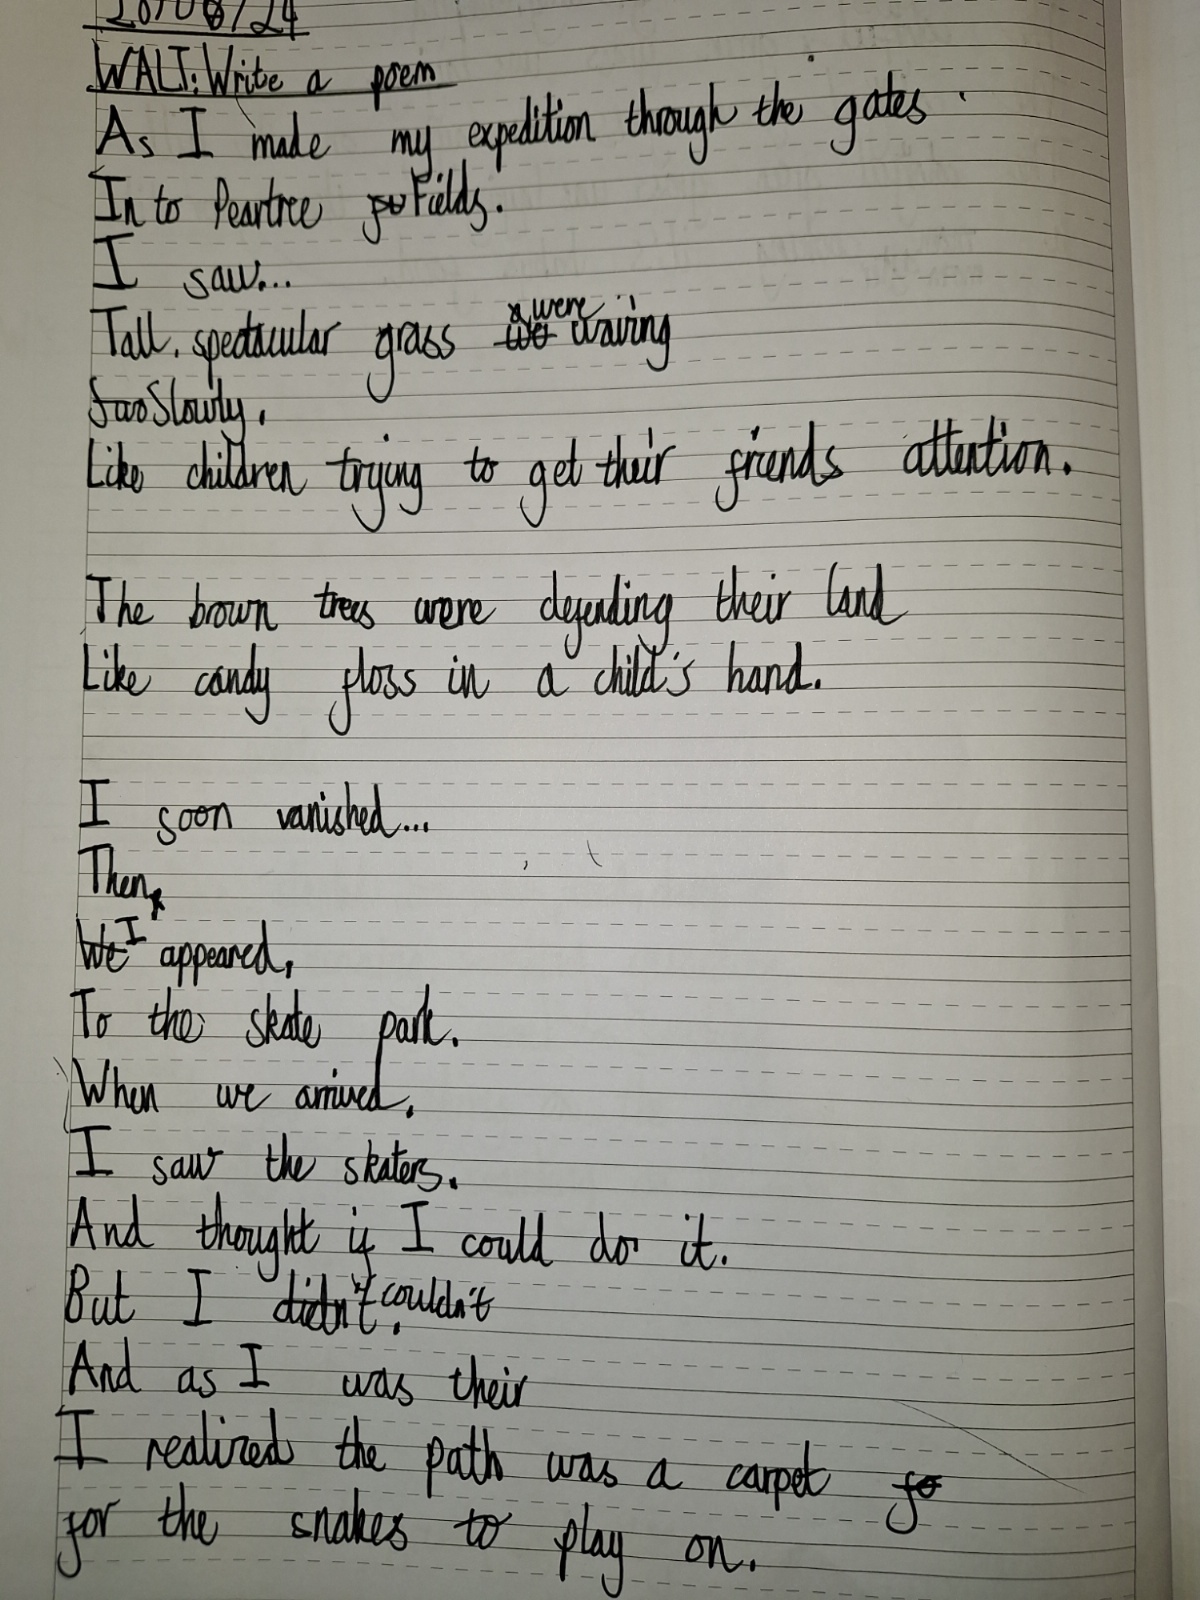 20/06/24
WALT: Write a poem
As I made my expedition through the gates
In to Peartree Fields.
I saw...
Tall, spectacular grass were waving
Slowly,
Like children trying to get their friends attention.
The brown trees were defending their land
Like candy floss in a child's hand.
I soon vanished...
Then,
I appeared,
To the skate park.
When we arrived,
I saw the skaters.
And thought if I could do it.
But I couldn't
And as I was their
I realized the path was a carpet
for the snakes to play on.